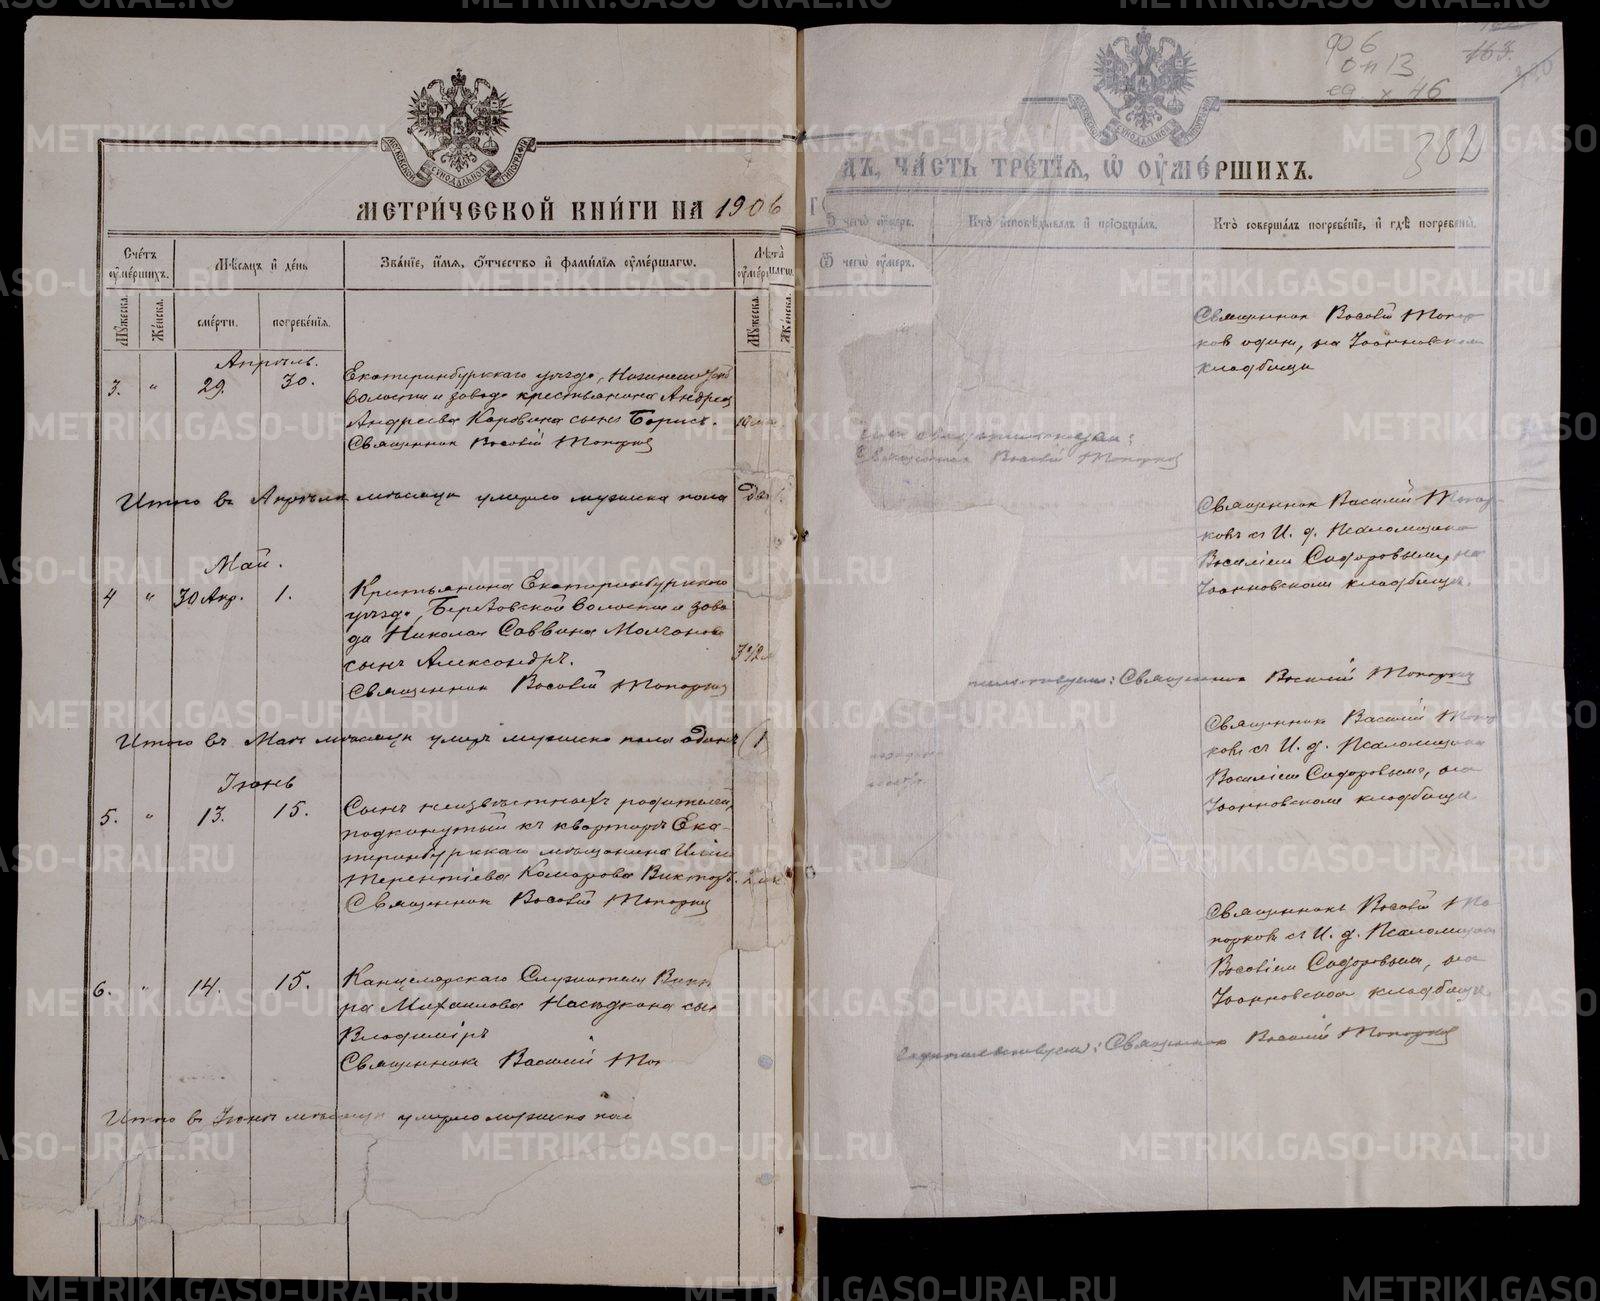 МОСКОВСКОЙ СѴНОДАЛЬНОЙ ТИПОГРАФІИ
МЕТРИ́ЧЕСКОЙ КНИ́ГИ НА 1906
Сче́тъ оу҆ме́ршихъ.
Мѣ́сяцъ и҆ де́нь
Зва́нїе, и҆́мя, ѻ҆́тчество и҆ фами́лїя оу҆ме́ршагѡ.
Лѣ́та оу҆ме́ршагѡ.
Мꙋ́жеска.
Же́нска.
сме́рти.
погребе́нїя.
Мꙋ́жеска.
Же́нска.
Апрѣль.
3. " 29. 30. Екатеринбургскаго уѣзда,
волости и завода крестьянина Андрея
Андреева Коровина сынъ Борисъ.
Священник Василій Топорков
Итого въ Апрѣлѣ мѣсяцѣ умерло мужска пола два
Май.
4 " 30 Апр. 1. Крестьянина Екатеринбургскаго
уѣзда, Березовской волости и заво
да Николая Саввина Молчанова
сынъ Александръ.
Священник Василій Топорков
Итого въ Маѣ мѣсяцѣ умеръ мужска пола одинъ (1
Іюнь
5. " 13. 15. Сынъ неизвѣстныхъ родителей,
подкинутый къ квартирѣ Ека-
теринбургскаго мѣщанина
Терентіева Комарова Викторъ. 2
Священник Василій Топорков
6. " 14. 15. Канцелярскаго Служителя
ра Михаилова Насѣдкина сын
Владиміръ
Священник Василій То
Итого въ Іюнѣ мѣсяцѣ умерло мужска пол
Ф 6
Оп 13
ед х 46
163
382
ДЪ, ЧА́СТЬ ТРЕ́ТЇЯ, Ѡ҆ ОУ҆МЕ́РШИХЪ.
Ѿ чегѡ̀ оу҆́меръ.
Кто̀ и҆сповѣ́дывалъ и҆ прїѡбща́лъ.
Кто̀ соверша́лъ погребе́нїе, и҆ гдѣ̀ погребены̀.
Ѿ чегѡ̀ оу҆́меръ.
Священник Василій Топор
ков один, на Іоанновском
кладбищѣ
Священник Василій Топорков
Священник Василій Топор-
ковъ съ И. д. Псаломщика
Василіем Сидоровым, на
Іоанновском кладбищѣ.
Священник Василій Топорков
Священник Василій Топор
ковъ съ И. д. Псаломщика
Василіем Сидоровым, на
Іоанновском кладбищѣ
Священникъ Василій То-
порковъ съ И. д. Псаломщика
Василіем Сидоровым, на
Іоанновском кладбищѣ
Священник Василій Топорков
METRIKI.GASO-URAL.RU